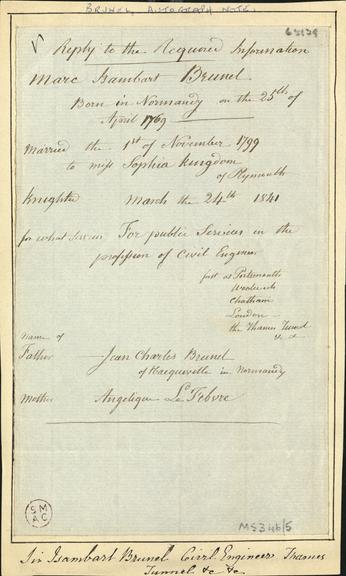 BRUNEL, AUTOGRAPH NOTE.
√ Reply to the Required Information
Marc Isambart Brunel.
Born in Normandy on the 25th of
April 1769
Married the 1st of November 1799
to miss Sophia Kingdom
of Plymouth
Knighted March the 24th 1841
for what services For public Services in the
profession of Civil Engineer
just at Portsmouth
Woolwich
Chatham
London
the Thames Tunnel
&c &c
Name of
Father Jean Charles Brunel
of Hacqueville in Normandy
Mother Angelique Le Febvre
MS346/5
Sir Isambart Brunel Civil Engineer. Thames
Tunnel &c &c